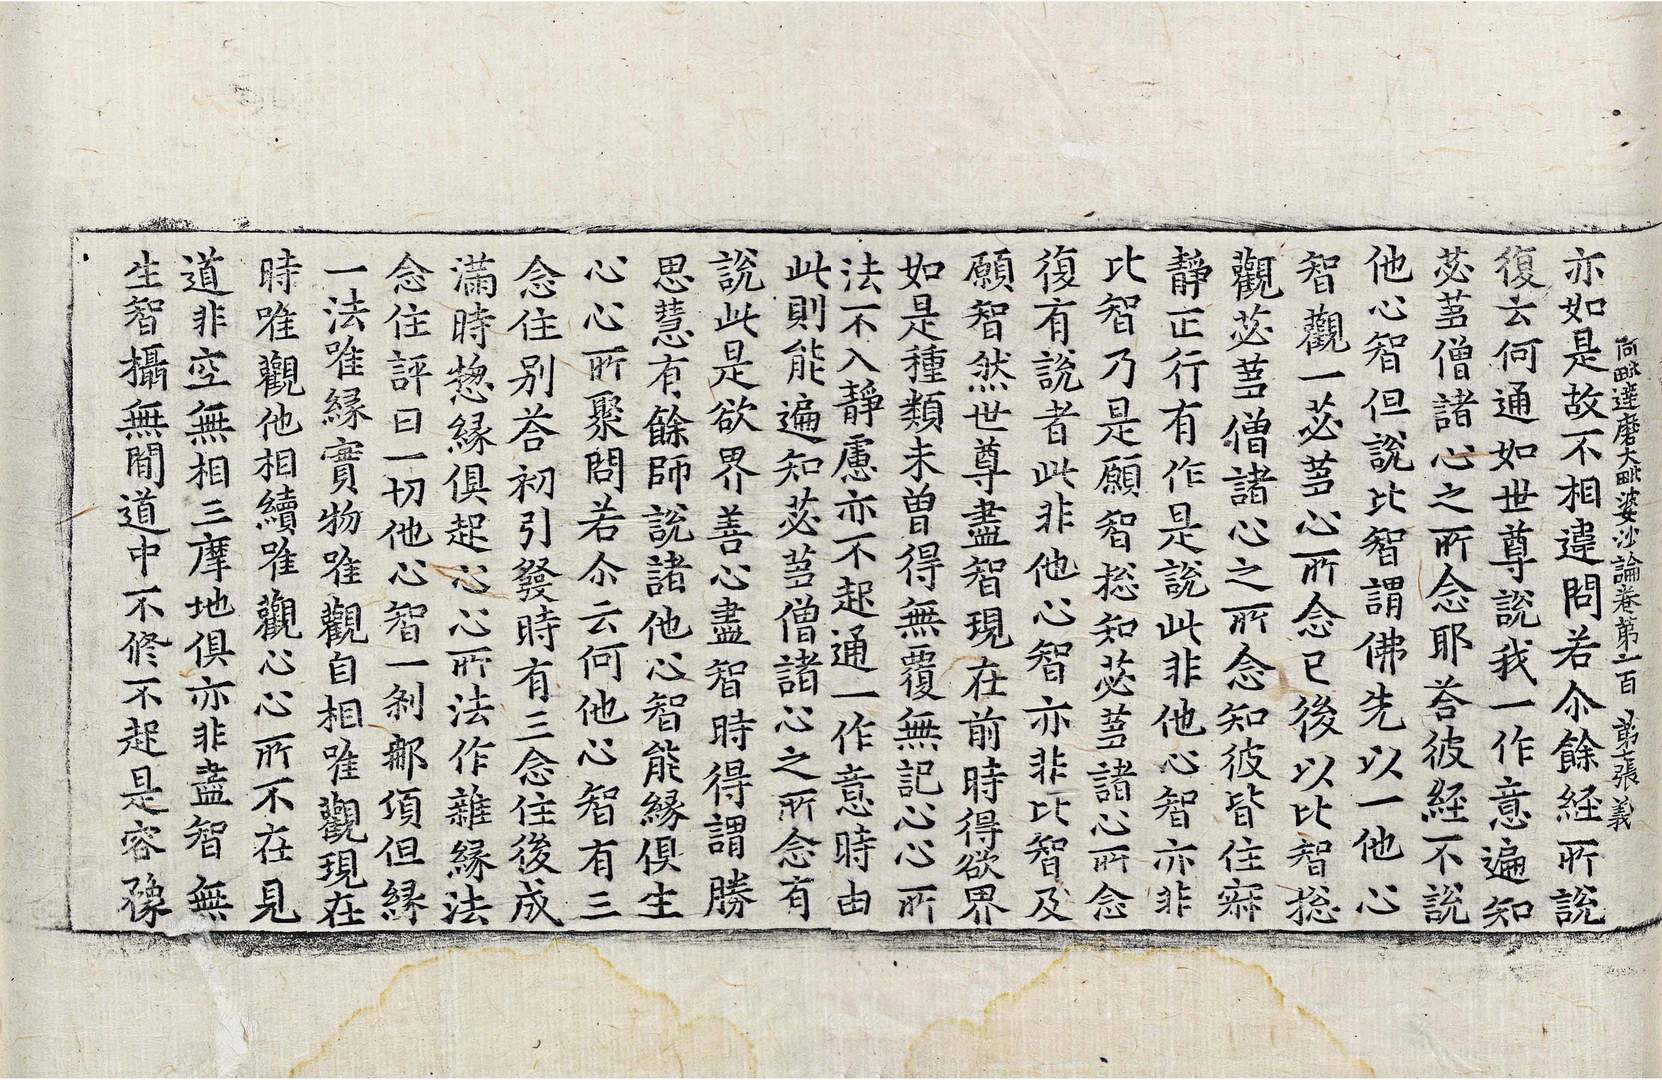 阿毗達磨大毗婆沙論卷第一百 第二張 義
亦如是故不相違問若尒餘経所說
復云何通如世尊說我一作意遍知
苾蒭僧諸心之所念耶荅彼経不說
他心智但說比智謂佛先以一他心
智觀一苾蒭心所念已後以比智揔
觀苾蒭僧諸心之所念知彼皆住寂
靜正行有作是說此非他心智亦非
比智乃是願智揔知苾蒭諸心所念
復有說者此非他心智亦非比智及
願智然世尊盡智現在前時得欲界
如是種類未曾得無覆無記心心所
法不入靜慮亦不起通一作意時由
此則能遍知苾蒭僧諸心之所念有
說此是欲界善心盡智時得謂勝
思慧有餘師說諸他心智能緣俱生
心心所聚問若尒云何他心智有三
念住別荅初引發時有三念住後成
滿時惣緣俱起心心所法作雜緣法
念住評曰一切他心智一剎那頃但緣
一法唯緣實物唯觀自相唯觀現在
時唯觀他相續唯觀心心所不在見
道非空無相三摩地俱亦非盡智無
生智攝無間道中不修不起是容豫